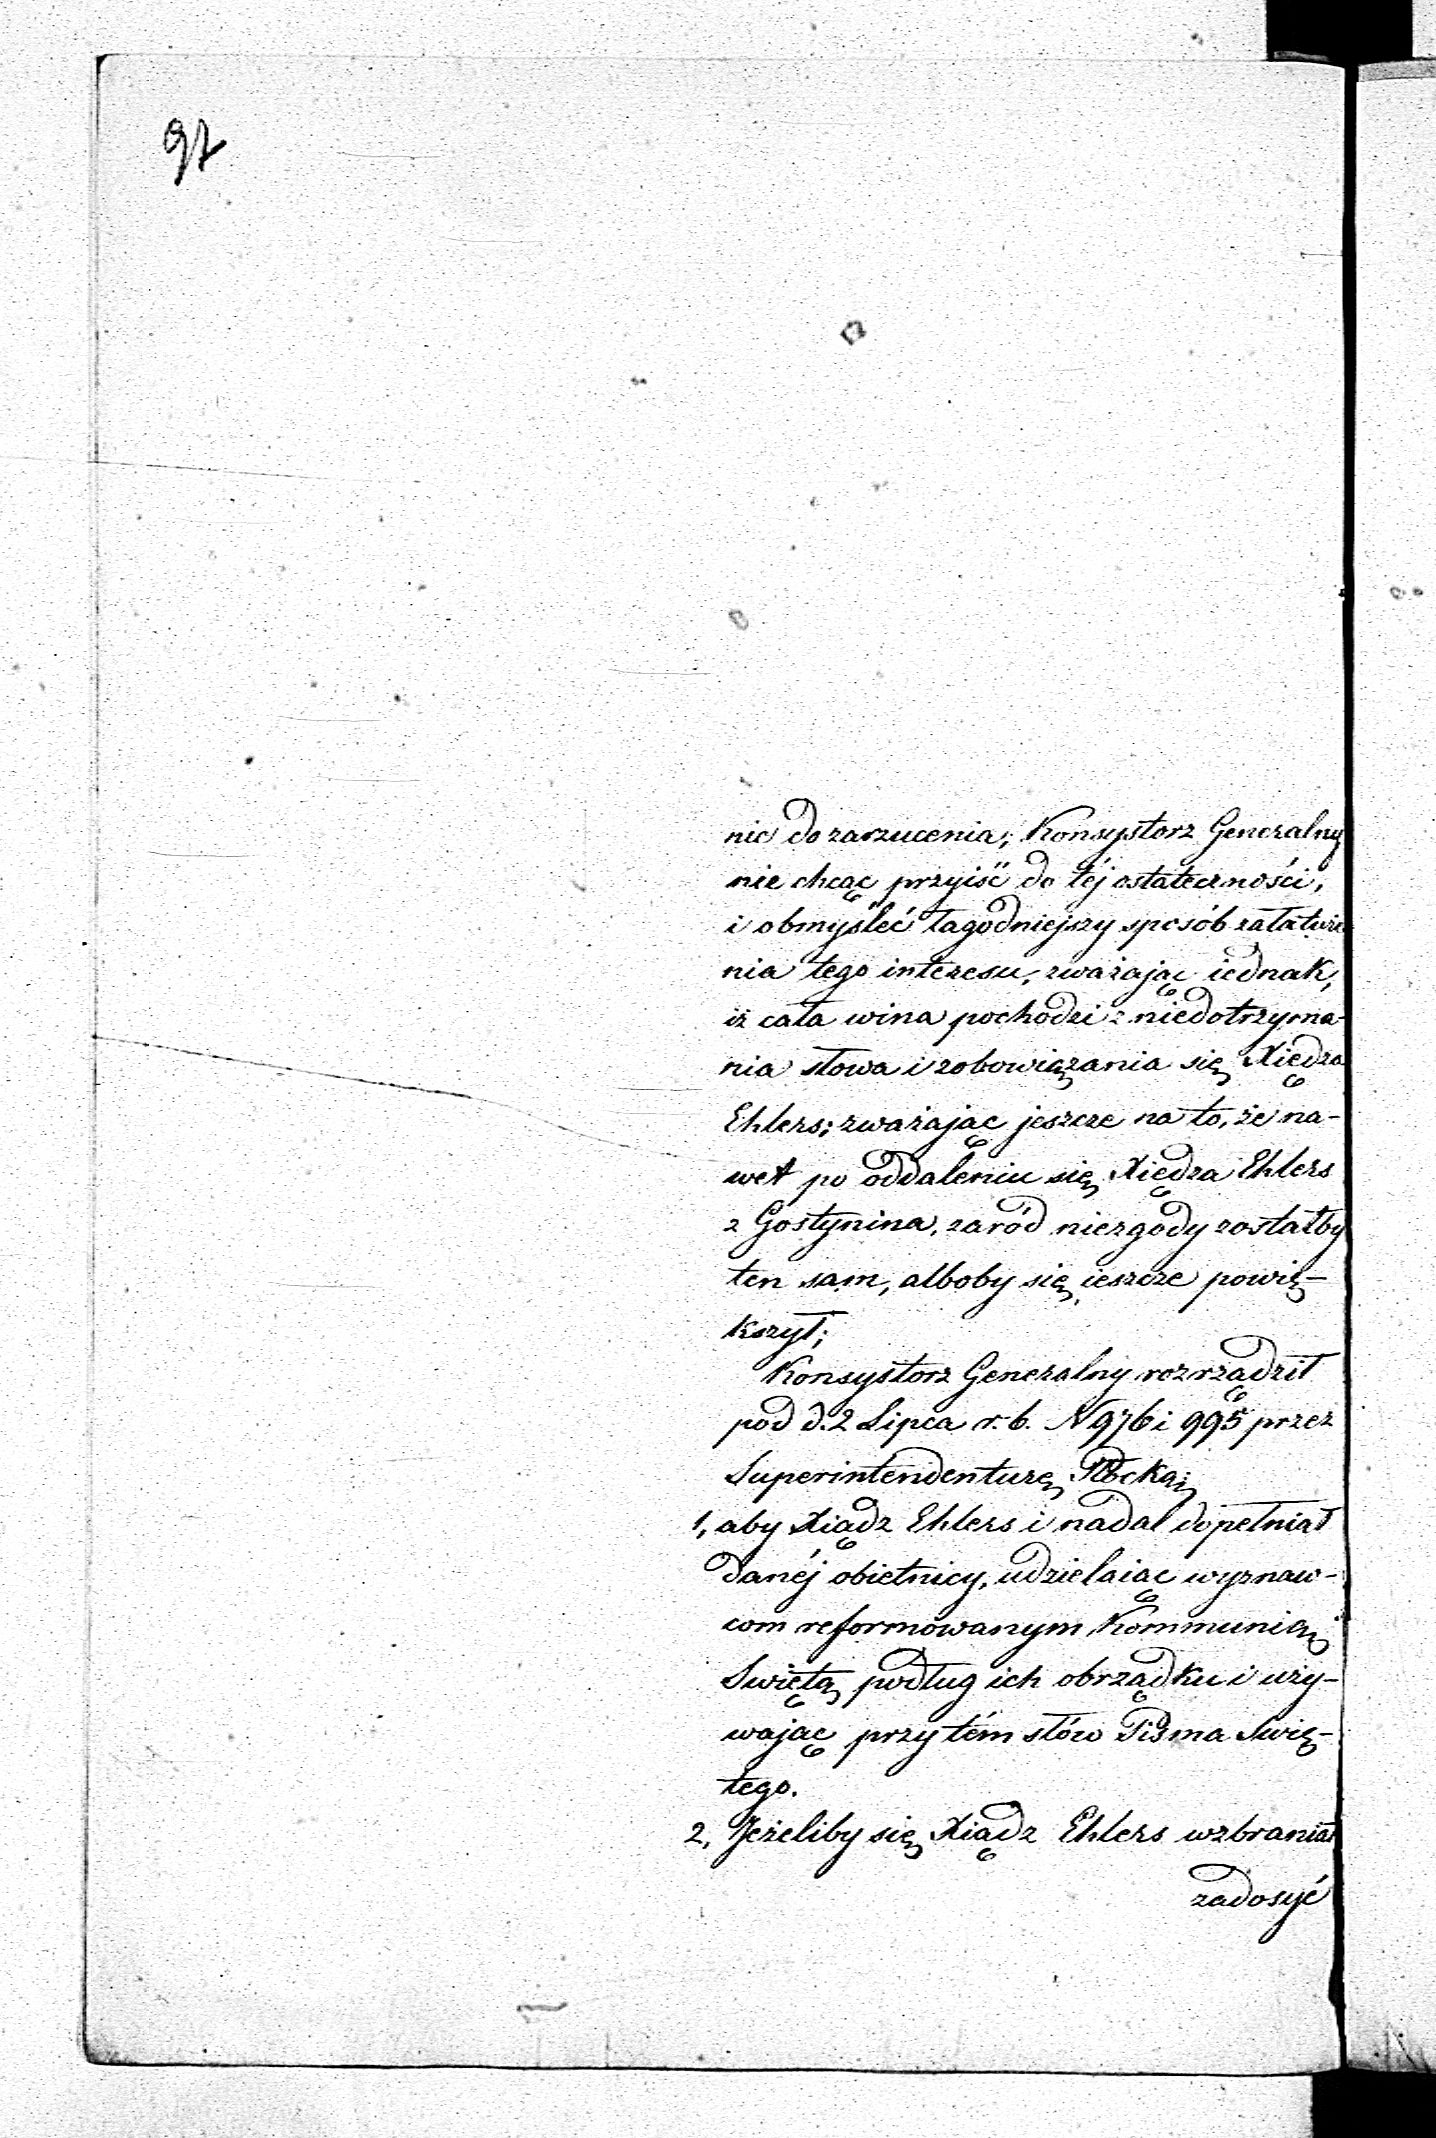 97
nic do zarzucenia; Konsystorz Generalny
nie chcąc przyiść do téj ostateczności,
i obmyśleć łagodniejszy sposób załatwie
nia tego interesu, zważając iednak,
iż cała wina pochodzi z niedotrzyma-
nia słowa i zobowiązania się Xiędza
Ehlers; zważając jeszcze na to, że na-
wet po oddaleniu się Xiędza Ehlers
z Gostynina, zaród niezgody zostałby
ten sam, alboby się ieszcze powię-
kszył;
Konsystorz Generalny rozrządził
pod d. 2 Lipca r. b. N 976 i 995 przez
Superintendenturę Płocką;
1, aby Xiądz Ehlers i nadal dopełniał
danéj obietnicy, udzielaiąc wyznaw-
com reformowanym Kommunią
Swiętą podług ich obrządku i uży-
wając przy tém słów Pisma Swię-
tego.
2, Jeżeliby się Xiądz Ehlers wzbraniał
zadosyć